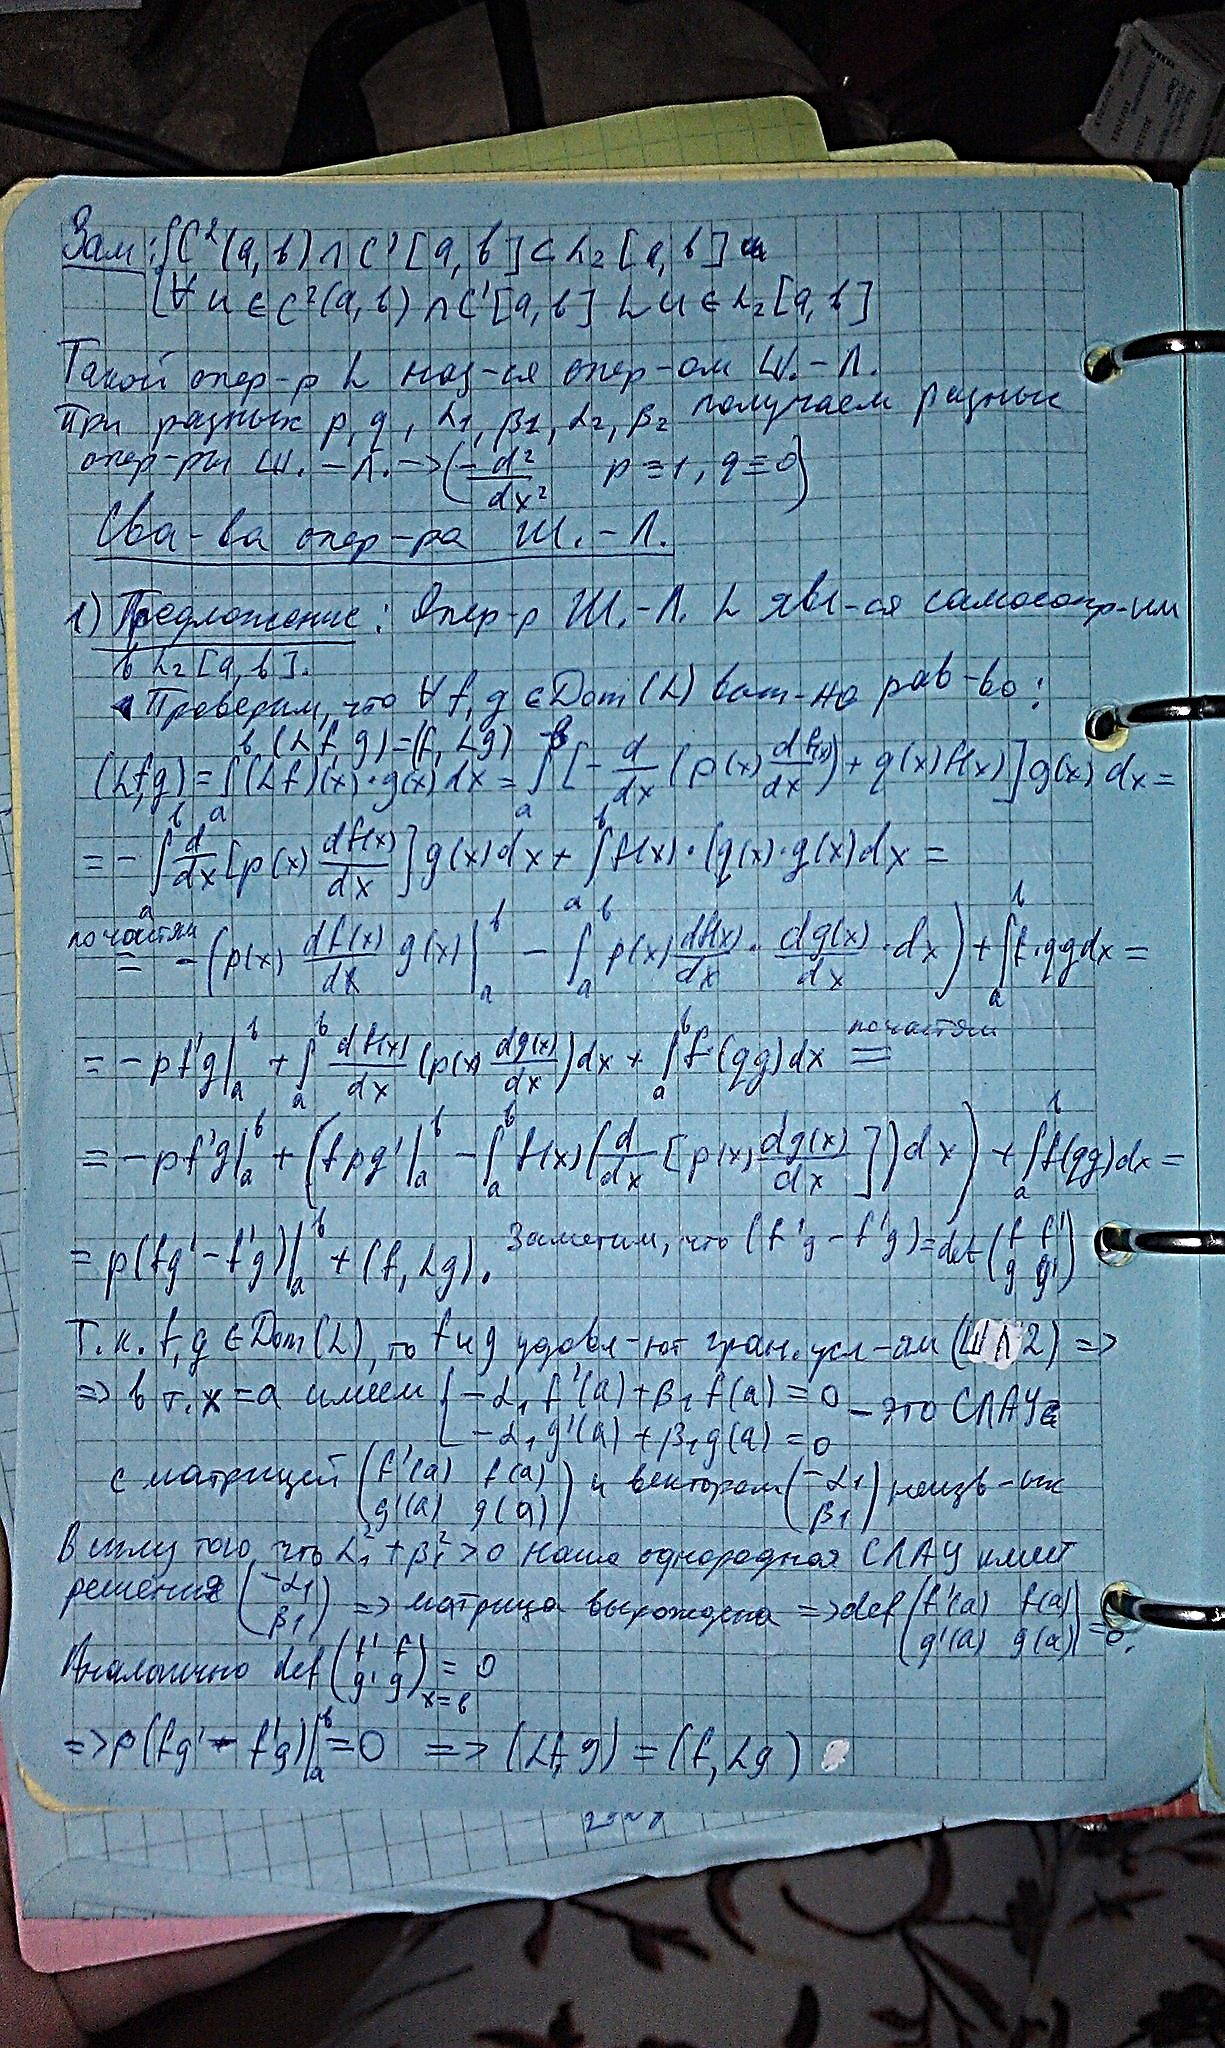 Зам: { C²(a,b) ∩ C¹[a,b] ⊂ L₂[a,b] и
{ ∀ u ∈ C²(a,b) ∩ C¹[a,b] Lu ∈ L₂[a,b]
Такой опер-р L наз-ся опер-ом Ш.-Л.
При разных p, q, α₁, β₁, α₂, β₂ получаем разные
опер-ры Ш.-Л. -> (-d²/dx² p ≡ 1, q ≡ 0)
Сва-ва опер-ра Ш.-Л.
1) Предложение: Опер-р Ш.-Л. L явл-ся самосопр-им
в L₂[a,b].
Проверим, что ∀ f, g ∈ Dom(L) вып-но рав-во:
(Lf, g) = (f, Lg)
(Lf,g) = ∫ₐᵇ (Lf)(x)·g(x) dx = ∫ₐᵇ [- d/dx (p(x) df(x)/dx) + q(x)f(x)] g(x) dx =
= - ∫ₐᵇ d/dx [p(x) df(x)/dx] g(x) dx + ∫ₐᵇ f(x)·(q(x)·g(x) dx =
по частям
= -(p(x) df(x)/dx g(x)|ₐᵇ - ∫ₐᵇ p(x) df(x)/dx · dg(x)/dx · dx) + ∫ₐᵇ f·qg dx =
= - pf'g|ₐᵇ + ∫ₐᵇ df(x)/dx (p(x) dg(x)/dx) dx + ∫ₐᵇ f·(qg) dx = по частям
= - pf'g|ₐᵇ + (fpg'|ₐᵇ - ∫ₐᵇ f(x) (d/dx [p(x) dg(x)/dx]) dx) + ∫ₐᵇ f(qg) dx =
= p(fg' - f'g)|ₐᵇ + (f, Lg). Заметим, что (f'g - f'g) = det (f f' / g g')
Т.к. f, g ∈ Dom(L), то f и g удовл-ют гран. усл-ям (ШЛ2) =>
=> в т. x = a имеем { -α₁ f'(a) + β₁ f(a) = 0 - это СЛАУ
{ -α₁ g'(a) + β₁ g(a) = 0
с матрицей (f'(a) f(a) / g'(a) g(a)) и вектором (-α₁ / β₁) неизв-ых
В силу того, что α₁² + β₁² > 0 наша однородная СЛАУ имеет
решения (-α₁ / β₁) => матрица вырождена => det (f'(a) f(a) / g'(a) g(a)) = 0.
Аналогично det (f' f / g' g)ₓ₌ᵦ = 0
=> p(fg' - f'g)|ₐᵇ = 0 => (Lf, g) = (f, Lg)